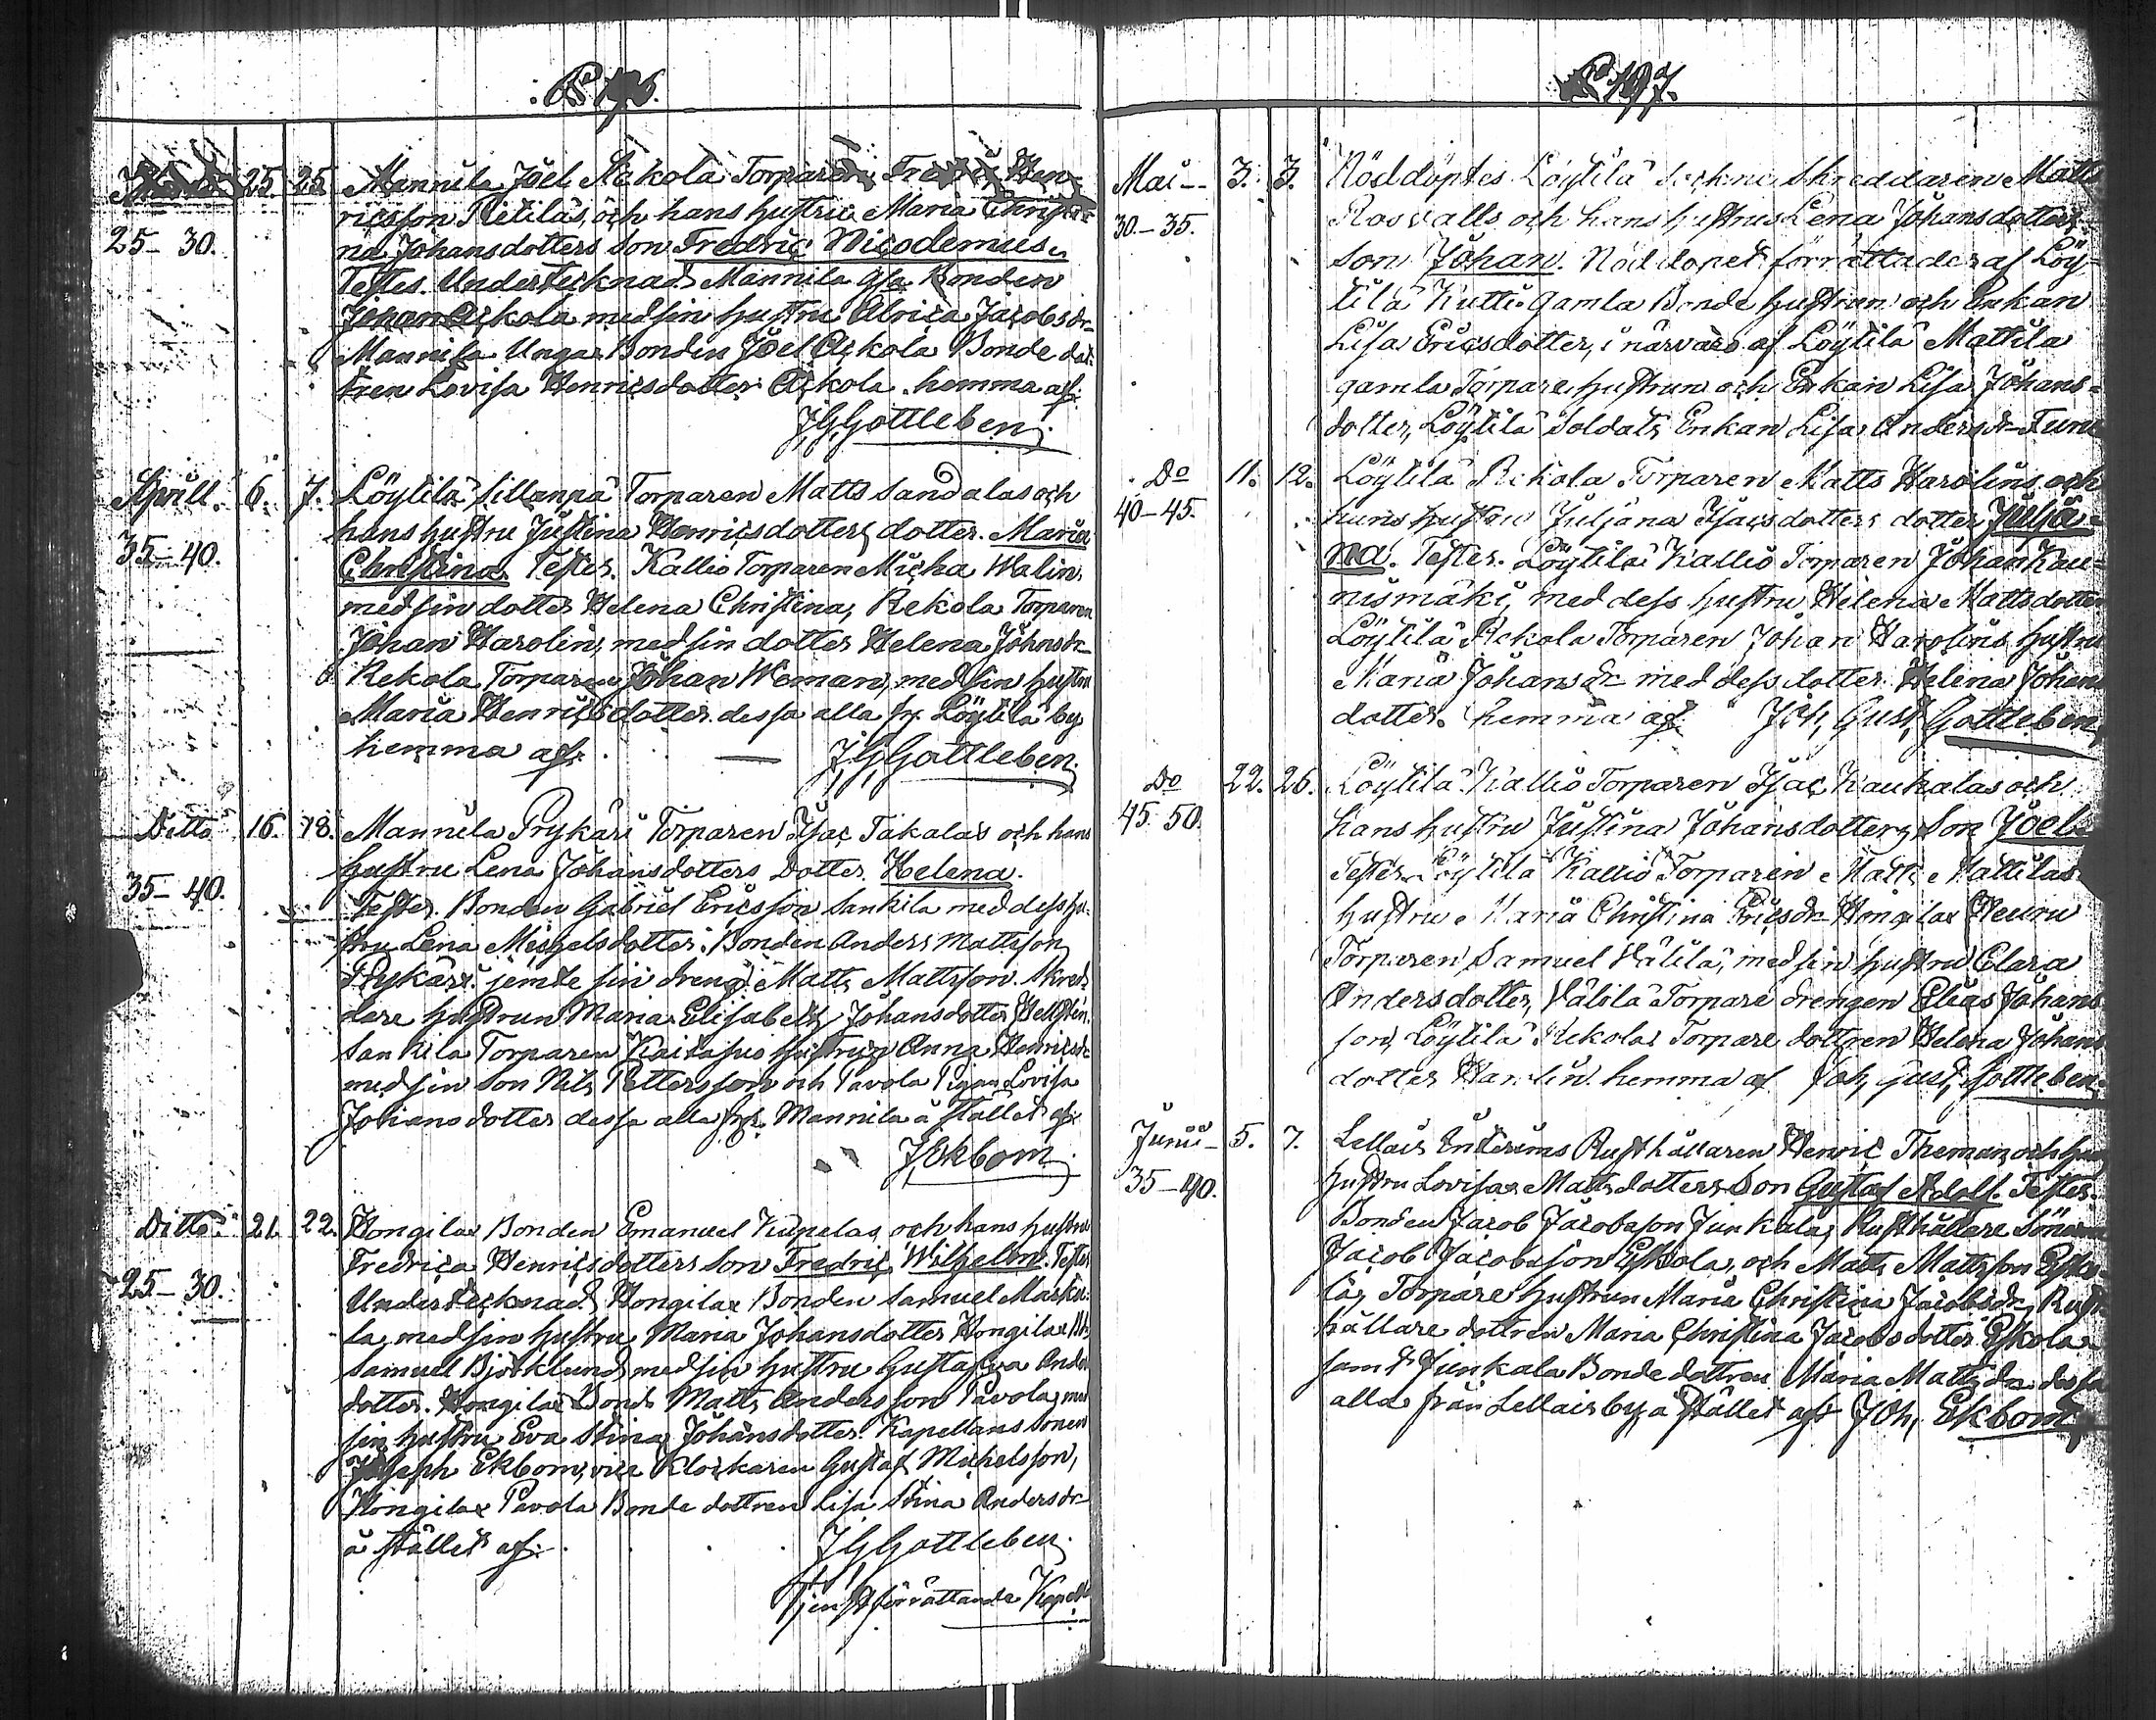 196.
25. 25. Mannila Joel Rekola Torparen Hen=
ricsson Retilas, och hans hustru Maria Christi=
25–30. na Johansdotters Son Fredric Nicodemus.
Testes. Undertecknad. Mannila Bonden
Johan med sin hustru Ulrica Jacobsdr
Mannila Unga Bonden Joel Bonde dot=
tren Lovisa Henricsdotter hemma af.
JGGottleben.
Aprill. 6. 7. Löytilä Sillanpä Torparen Matts Sandalas och
hans hustru Justina Henricsdotters dotter. Maria
35–40. Christina. Testes. Kallio Torparen Micha Walin
med sin dotter Helena Christina, Rekola Torparen
Johan Harolin, med sin dotter Helena Johnsdr
Rekola Torparen Johan Weman, med sin hustru
Maria Henricsdotter dessa alla fr. Löytilä by
hemma af. — JGGottleben.
Ditto 16. 18. Mannila Prykäri Torparen Isac Takalas och hans
hustru Lena Johansdotters Dotter Helena.
35–40. Testes. Bonden Gabriel Ericsson Sankila med dess hu=
stru Lena Michelsdotter. Bonden Anders Mattsson
Prykäri jemte sin dreng Matts Mattsson. Skred=
dare hustrun Maria Elisabeth Johansdotter
Sankila Torparen hustrun Anna Henricsdr
med sin Son Nils Pettersson och Pavola Pigan Lovisa
Johansdotter dessa alla fr. Mannila å stället af.
JEkbom.
Ditto 21. 22. Hongilax Bonden Emanuel och hans hustru
Fredrica Henricsdotters Son Fredric Wilhelm. Testes
25–30. Undertecknad. Hongilax Bonden Samuel Marku=
la, med sin hustru Maria Johansdotter Hongilax
Samuel Björklund, med sin hustru Gustava Anders
dotter. Hongilax Bond. Matts Andersson Pavola, med
sin hustru Eva Stina Johansdotter. Kapellans Sonen
Joseph Ekbom, vice Klockaren Gustaf Michelsson,
Hongilax Pavola Bonde dottren Lisa Stina Andersdr
å stället af. JGGottleben.
Tjenstförrättande Kapell
197.
Mai 3. 3. Nöddöptes Löytilä Sockne Skreddaren Matts
30–35. Rosvalls och hans hustrus Lena Johansdotters
Son Johan. Nöddopet förrättades af Löy=
tilä Kutti gamla Bonde hustrun och Enkan
Lisa Ericsdotter, i närvaro af Löytilä Mattila
gamla Torpare hustrun och Enkan Lisa Johans=
dotter, Löytilä Soldats Enkan Lisa Andersdr
Do 11. 12. Löytilä Rekola Torparen Matts Harolins och
40–45. hans hustru Juljana Isacsdotters dotter Julja=
na. Testes. Löytilä Kallio Torparen Johan Kau=
nismäki, med dess hustru Helena Mattsdotter
Löytilä Rekola Torparen Johan Harolins hustru
Maria Johansdr med dess dotter Helena Johans
dotter. hemma af. Joh. Gust. Gottleben.
Do 22. 26. Löytilä Kallio Torparen Isac Kaukalas och
45–50. hans hustru Justina Johansdotters Son Joel.
Testes. Löytilä Kallio Torparen Matts Mattilas
hustru Maria Christina Ericsdr Hongilax
Torparen Samuel Välilä, med sin hustru Clara
Andersdotter, Välilä Torpare drengen Elias Johans
son, Löytilä Rekola Torpare dottren Helena Johans
dotter Harolin. hemma af Joh. Gust. Gottleben.
Junii 5. 7. Lellais Interims Rusthållaren Henric Theman, och hans
35–40. hustru Lovisa Mattsdotters Son Gustaf Adolf. Testes.
Bonden Jacob Jacobsson Junkala, Rusthållare Sönerne
Jacob Jacobsson Eskola, och Matts Mattsson Esko=
la, Torpare hustrun Maria Christina Jacobsdr, Rust=
hållare dottren Maria Christina Jacobsdotter Eskola
samt Junkala Bonde dottren Maria Mattsdr dessa
alla från Lellais by, å stället af Joh. Ekbom.